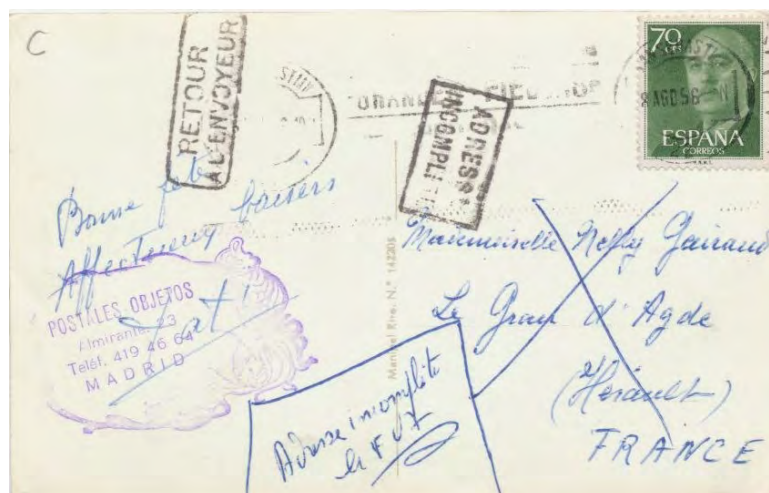 C
RETOUR
A L'ENVOYEUR
ADRESSE
INCOMPLETE
70
ESPAÑA
CORREOS
Bonne fête
Affectueux baisers
POSTALES OBJETOS
Almirante, 23
Teléf. 419 46 64
MADRID
Mademoiselle Nelly Gairaud
Le Grau d'Agde
(Hérault)
FRANCE
Adresse incomplète
le